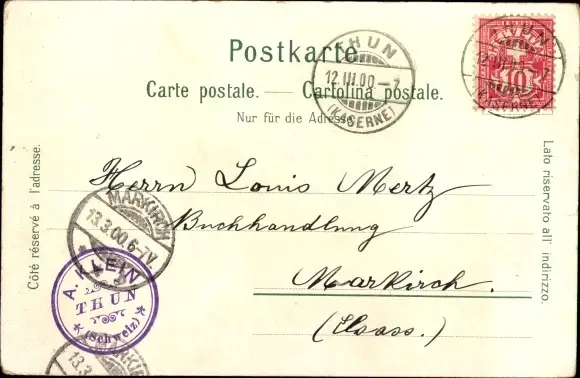 Postkarte
Carte postale. — Cartolina postale.
Nur für die Adresse.
Côté réservé à l'adresse.
Lato riservato all' indirizzo.
THUN
12.III.00.–7
(KASERNE)
THUN
12.III.00.–7
(KASERNE)
10
Herrn Louis Mertz
Buchhandlung
Markirch.
(Elsass.)
MARKIRCH
13.3.00.6-7V
A. KLEIN
THUN
(Schweiz)
MARKIRCH
13.3.